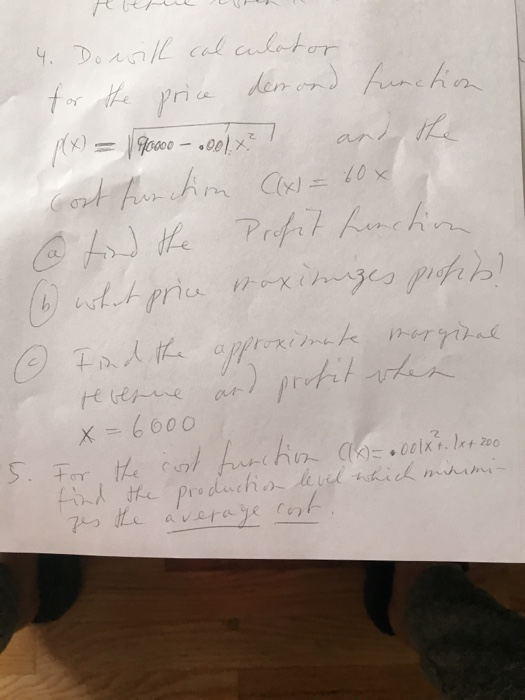 4. Do with calculator
for the price demand function
p(x) = √90000 - .001x² and the
cost function C(x) = 60x
(a) find the Profit function
(b) what price maximizes profits?
(c) Find the approximate marginal
revenue and profit when
x = 6000
5. For the cost function C(x) = .001x² + .1x + 200
find the production level which minimi-
zes the average cost.